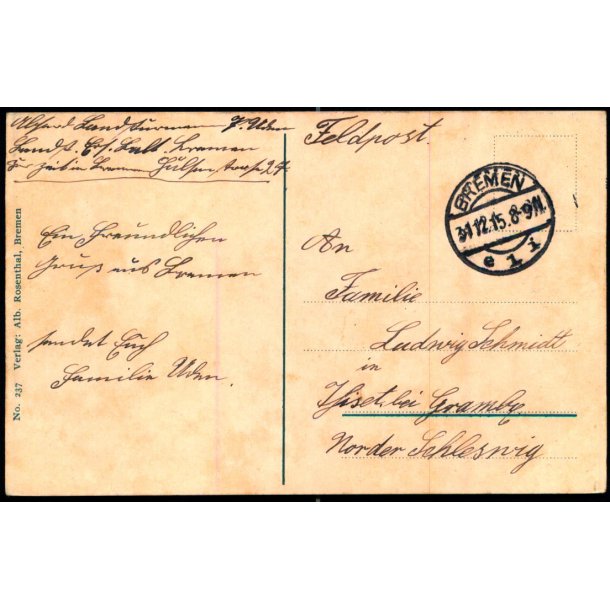 Absend. Landsturmm. J. Uden
Landst. Ers. Batl. Bremen
Zur Zeit in Bremen
Ein Freundlichen
Gruß aus Bremen
sendet Euch
Familie Uden.
Feldpost.
BREMEN
31.12.15.8-9N.
e 1 i
An
Familie
Ludwig Schmidt
in
Thiset bei Gramby
Norder Schleswig
No. 237 Verlag: Alb. Rosenthal, Bremen